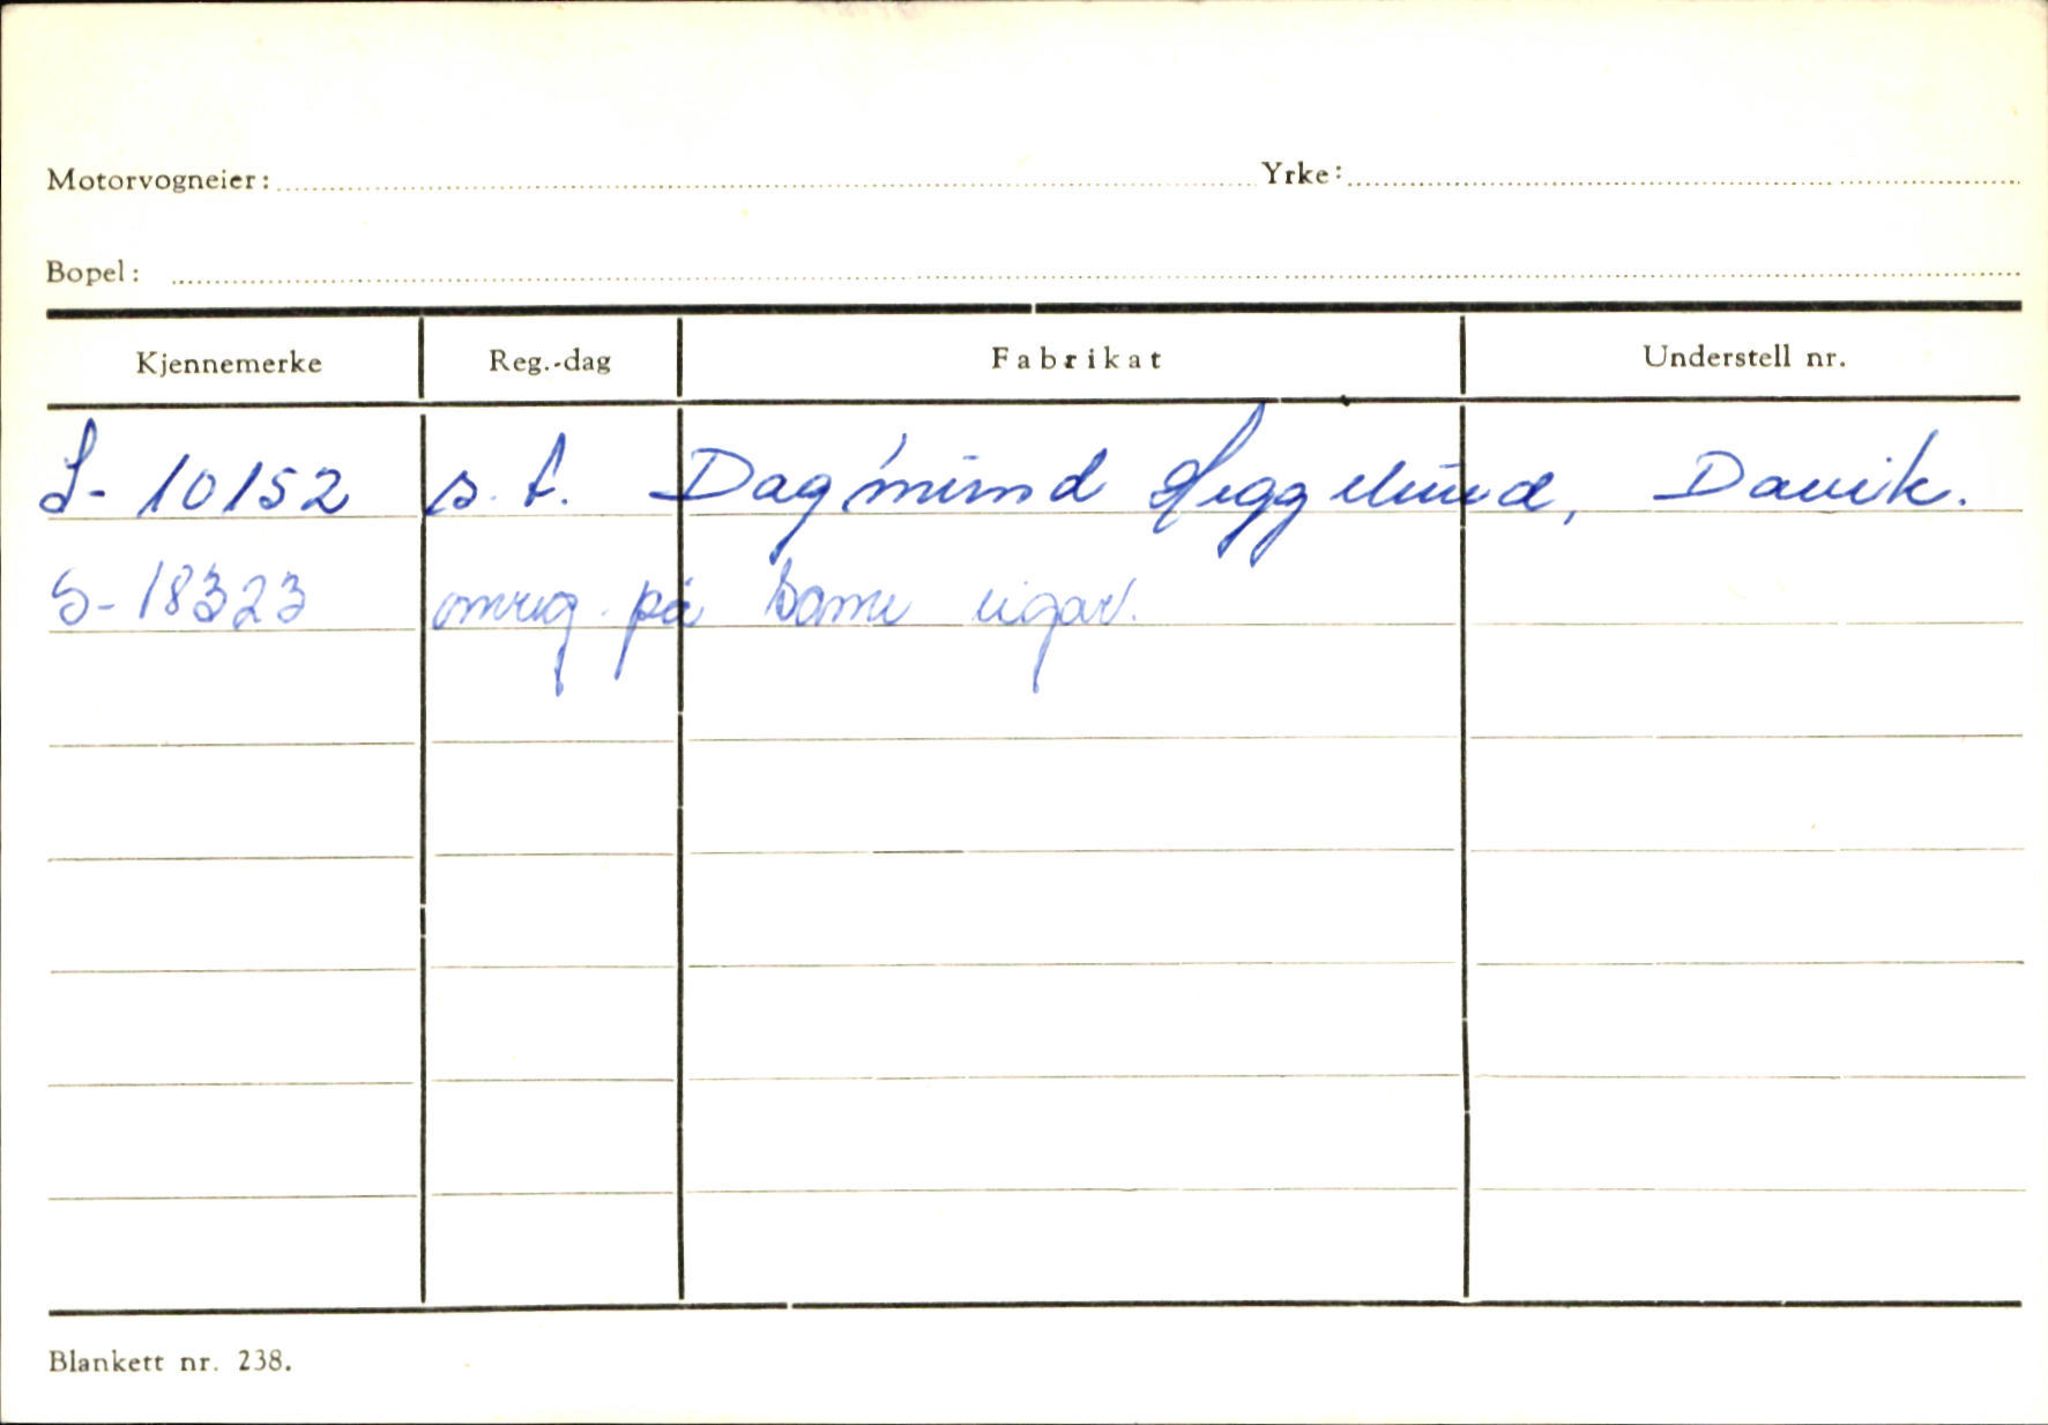 Motorvogneier: Yrke:
Bopel:
Kjennemerke Reg.-dag Fabrikat Understell nr.
S-10152 s.t. Dagfinn Heggelund, Davik.
S-18323 omreg. på same eigar.
Blankett nr. 238.